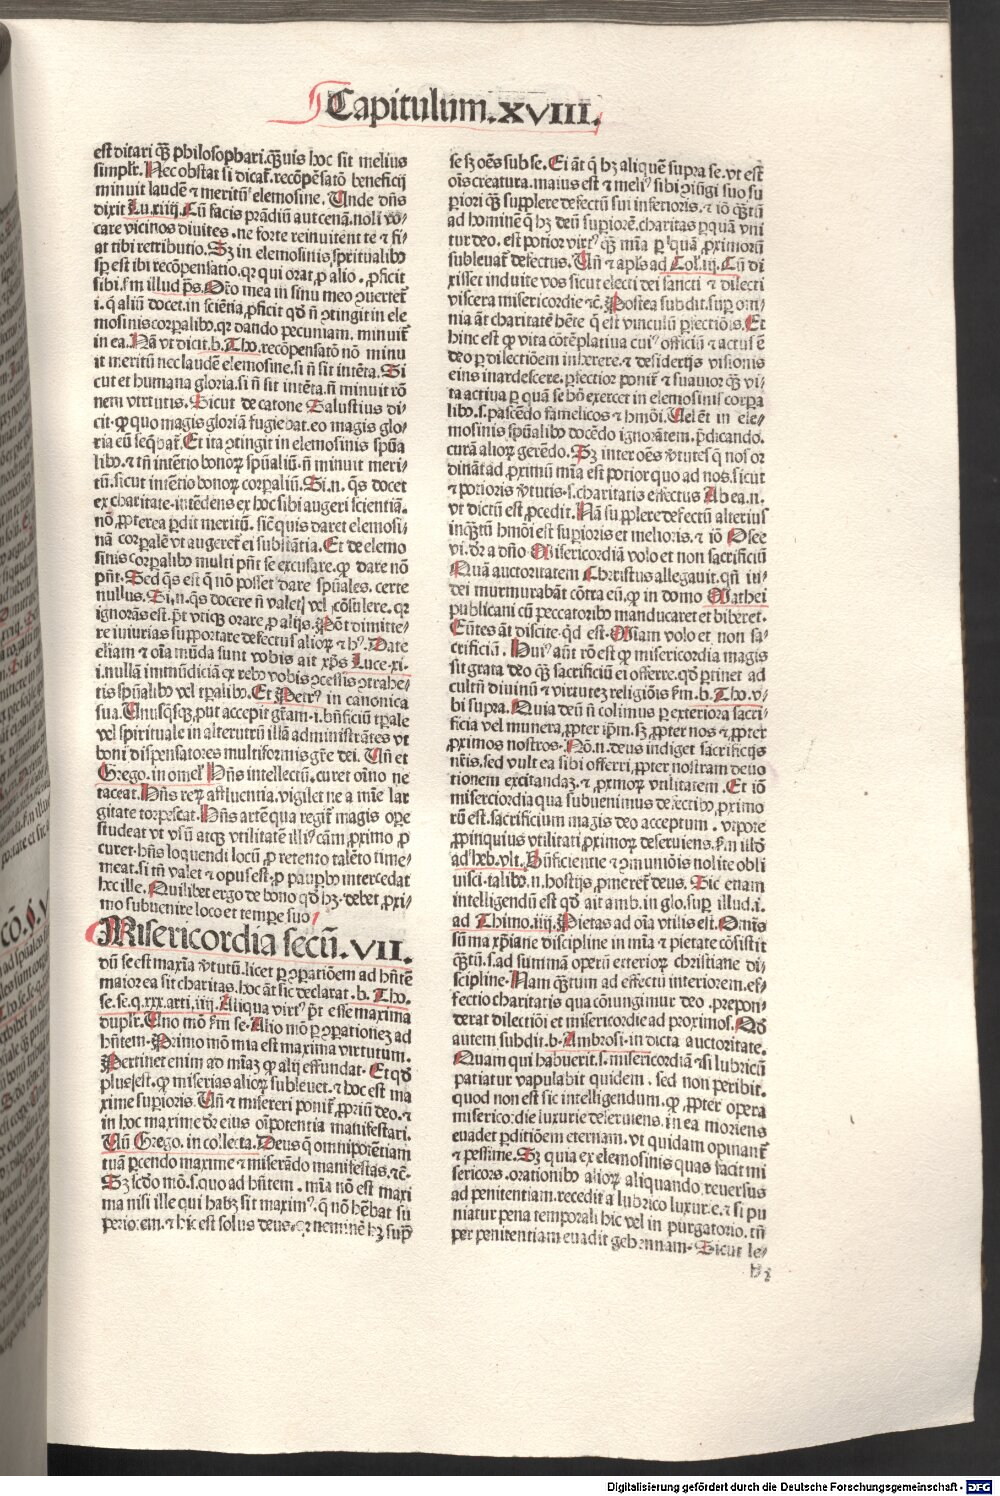 Capitulum.XVIII.
est ditari qȝ philosophari.qȝuis hoc sit melius
simplr̄. Nec obstat si dicat̄.recōpēsatō beneficij
minuit laudē ⁊ meritū elemosine. Unde dn̄s
dixit Lu.xiiij.Cū facis prādiū aut cenā.noli vo⸗
care vicinos diuites.ne forte reinuitent te ⁊ fi⸗
at tibi retributio.Sȝ in elemosinis spiritualibꝰ
sp̄ est ibi recōpensatio.qꝛ qui orat ꝓ alio.ꝓficit
sibi.ẜm illud ps.Oro mea in sinu meo ꝯuertet̄
i.q aliū docet.in sciētia ꝓficit qđ n̄ ꝯtingit in ele
mosinis corꝑalibꝰ.qꝛ dando pecuniam.minuit̄
in ea.Nā vt dicit.b.Tho.recōpensatō nō minu
it meritū nec laudē elemosine.si n̄ sit intēta.Si
cut et humana gloria.si n̄ sit intēta.n̄ minuit rō
nem virtutis.Sicut de catone Salustius di⸗
cit.ꝙ quo magis gloriā fugiebat.eo magis glo⸗
ria eū seq̄bat̄.Et ita ꝯtingit in elemosinis spūa
libꝰ.⁊ tn̄ intētio bonoꝝ spūaliū.n̄ minuit meri⸗
tū.sicut intētio bonoꝝ corꝑaliū.Si.n.q̄s docet
ex charitate.intēdens ex hoc sibi augeri scientiā.
nō ꝓpterea ꝑdit meritū.sic̄ quis daret elemosi⸗
nā corꝑalē vt augeret̄ ei substātia.Et de elemo
sinis corꝑalibꝰ multi pn̄t se excusare.ꝙ dare nō
pn̄t.Sed q̄s est q̄ nō posset dare spūales.certe
nullus.Si.n.q̄s docere n̄ valet vel ꝯsulere.qꝛ
ignorās est.pt̄ vtiqȝ orare ꝓ alijs.Pōt dimitte⸗
re iniurias supportare defectus alioꝝ ⁊ hꝰ.Date
eliam ⁊ oīa mūda sunt vobis ait xp̄s Luce.xi.
i.nullā immūdiciā ex rebꝰ vobis ꝯcessis ꝯtrahe⸗
tis spūalibꝰ vel tꝑalibꝰ.Et Petrꝰ in canonica
sua.Unusqsqȝ put accepit gr̄am.i.bn̄ficiū tꝑale
vel spirituale in alterutrū illā administrātes vt
boni dispensatores multiformis gr̄e dei. Un̄ et
Grego.in omel Hn̄s intellectū.curet oīno ne
taceat.Hn̄s reꝝ affluentia.vigilet ne a mīe lar
gitate torpescat.Hn̄s artē qua regit̄ magis oꝑe
studeat vt vsū atqȝ vtilitatē illiꝰ cām ꝓximo ꝓ
curet.hn̄s loquendi locū ꝓ retento talēto time⸗
meat.si tn̄ valet ⁊ opus est.ꝓ pauꝑbꝰ intercedat
hec ille.Quilibet ergo de bono qđ hȝ.debet ꝓxi⸗
mo subuenire loco et tempe suo
Misericordia secū.VII.
dū se est maxīa v̄tutū.licet ꝑ ꝯꝑatiōem ad hn̄tē
maior ea sit charitas.hoc āt sic declarat.b. Tho.
se.se.q.xxx.arti.iiij.Aliqua virtꝰ pt̄ esse maxima
duplr̄.Uno mō ẜm se.Alio mō ꝑ ꝯꝑationeȝ ad
hn̄tem.Primo mō mīa est maxima virtutum.
Pertinet enim ad mīaȝ ꝙ alij effundat.Et qđ
plus est.ꝙ miserias alioꝝ subleuet.⁊ hoc est ma
xime suꝑioris.Un̄ ⁊ misereri ponit̄ ꝓpriū deo.⁊
in hoc maxime dr̄ eius oīpotentia manifestari.
Un̄ Grego.in collecta.Deus q̄ omnipotētiam
tuā ꝑcendo maxime ⁊ miserādo manifestas.⁊c̄.
Sȝ scd̄o mō.s.quo ad hn̄tem.mīa nō est maxi
ma nisi ille qui habȝ sit maximꝰ.q̄ nō hēbat su
periorem.⁊ hic est solus deus.qꝛ neminē hȝ sup̄
se sȝ oēs sub se.Ei āt q̄ hȝ aliquē supra se.vt est
oīs creatura.maius est ⁊ meliꝰ sibi ꝯiūgi suo su
ꝑiori qȝ supplere defectū sui inferioris.⁊ iō qȝtū
ad hominē q̄ hȝ deū suꝑiorē.charitas ꝑ quā vni
tur deo.est potior virtꝰ qȝ mīa ꝑ quā ꝓximoꝝ
subleuat̄ defectus.Un̄ ⁊ apls ad Col.iij.Cū di
xisset induite vos sicut electi dei sancti ⁊ dilecti
viscera misericordie ⁊c̄.Postea subdit.suꝑ om⸗
nia āt charitatē hēte q̄ est vinculū ꝑfectiōis.Et
hinc est ꝙ vita cōtēplatiua cuiꝰ officiū ⁊ actus ē
deo ꝑ dilectiōem inherere.⁊ desiderijs visionis
eius inardescere.ꝑfectior ponit̄ ⁊ suauior qȝ vi⸗
ta actiua ꝑ quā se hō exercet in elemosinis corꝑa
libꝰ.s.pascēdo famelicos ⁊ hmōi.Uel ēt in ele⸗
mosinis spūalibꝰ docēdo ignorātem.p̄dicando.
curā alioꝝ gerēdo.Sȝ inter oēs v̄tutes q̄ nos or
dināt ad ꝓximū mīa est potior quo ad nos.sicut
⁊ potioris v̄tutis.s.charitatis effectus Ab ea.n.
vt dictū est ꝓcedit.Nā supplere defectū alterius
inqȝtū hmōi est suꝑioris et melioris.⁊ iō Osee
vi.dr̄ a dn̄o Misericordiā volo et non sacrificiū
Quā auctoritatem Christus allegauit.qn̄ iu⸗
dei murmurabāt cōtra eū.ꝙ in domo Mathei
publicani cū peccatoribꝰ manducaret et biberet.
Eūtes āt discite.qd est.Miam volo et non sa⸗
crificiū. Huiꝰ aūt rō est ꝙ misericordia magis
sit grata deo qȝ sacrificiū ei offerre.qđ ꝑtinet ad
cultū diuinū ⁊ virtuteȝ religiōis ẜm.b.Tho.v⸗
bi supra.Quia deū n̄ colimus ꝑ exteriora sacri⸗
ficia vel munera ꝓpter ip̄m.sȝ ꝓpter nos ⁊ ꝓpter
ꝓximos nostros.Nō.n.deus indiget sacrificijs
nr̄is.sed vult ea sibi offerri ꝓpter nostram deuo
tionem excitandaȝ.⁊ ꝓximoꝝ vtilitatem.Et iō
misericordia qua subuenimus defectibꝰ ꝓximo
rū est.sacrificium magis deo acceptum.vtpote
ꝓpinquius vtilitati ꝓximoꝝ deseruiens.ẜm illđ
ad heb.vlt.Bn̄ficientie ⁊ ꝯmuniōis nolite obli
uisci.talibꝰ.n.hostijs ꝓmeret̄ deus.Sic etiam
intelligendū est qđ ait amb.in glo.suꝑ illud.i.
ad Thimo.iiij.Pietas ad oīa vtilis est.Omīs
sūma xp̄iane discipline in mīa ⁊ pietate cōsistit
qȝtū.s.ad summā operū exterioꝝ christiane di⸗
scipline.Nam qȝtum ad effectū interiorem.ef⸗
fectio charitatis qua cōiungimur deo.prepon⸗
derat dilectiōi et misericordie ad proximos.Qđ
autem subdit.b.Ambrosi.in dicta auctoritate.
Quam qui habuerit.s.misericordiā ⁊ si lubricū
patiatur vapulabit quidem.sed non peribit.
quod non est sic intelligendum.ꝙ ꝓpter opera
misericordie luxurie deseruiens.in ea moriens
euadet ꝑditiōem eternam.vt quidam opinant̄
⁊ pessime.Sȝ quia ex elemosinis quas facit mi
sericors.orationibꝰ alioꝝ aliquando reuersus
ad penitentiam.recedit a lubrico luxurie.⁊ si pu
niatur pena temporali hic vel in purgatorio.tn̄
per penitentiam euadit gehennam.Sicut le⸗
b 2
Digitalisierung gefördert durch die Deutsche Forschungsgemeinschaft - DFG